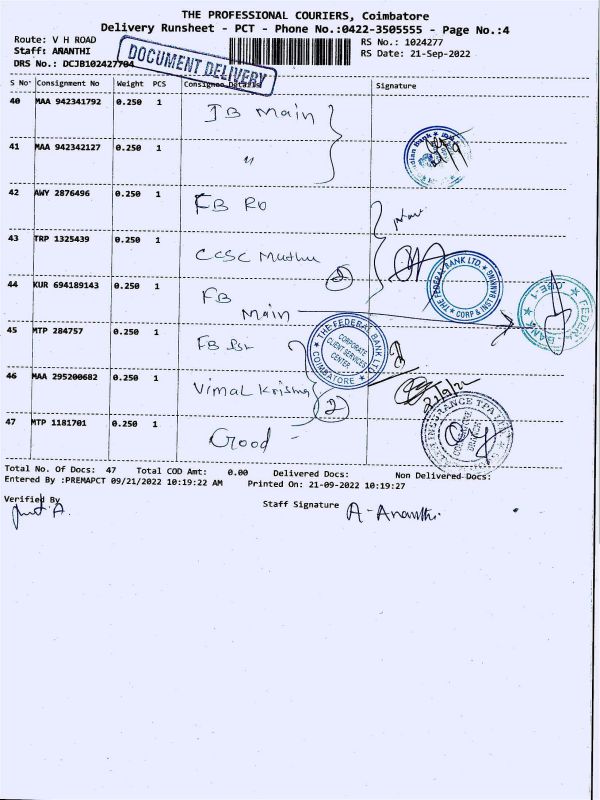 THE PROFESSIONAL COURIERS, Coimbatore
Delivery Runsheet - PCT - Phone No.:0422-3505555 - Page No.:4
Route: V H ROAD
RS No.: 1024277
Staff: ANANTHI
RS Date: 21-Sep-2022
DRS No.: DCJB102427704
DOCUMENT DELIVERY
S No Consignment No Weight PCS Consignee Details Signature
40 MAA 942341792 0.250 1 IB Main
41 MAA 942342127 0.250 1 "
42 AWY 2876496 0.250 1 FB RO
43 TRP 1325439 0.250 1 CCSC Muthu
44 KUR 694189143 0.250 1 FB Main
THE FEDERAL BANK LTD. CORP & INST BANKING
45 MTP 284757 0.250 1 FB
THE FEDERAL BANK LTD. COIMBATORE CORPORATE CLIENT SERVICES CENTER
46 MAA 295200682 0.250 1 Vimal Krishna 2
21/9/22
47 MTP 1181701 0.250 1 Good -
Total No. Of Docs: 47 Total COD Amt: 0.00 Delivered Docs: Non Delivered Docs:
Entered By :PREMAPCT 09/21/2022 10:19:22 AM Printed On: 21-09-2022 10:19:27
Verified By
Staff Signature A-Ananthi